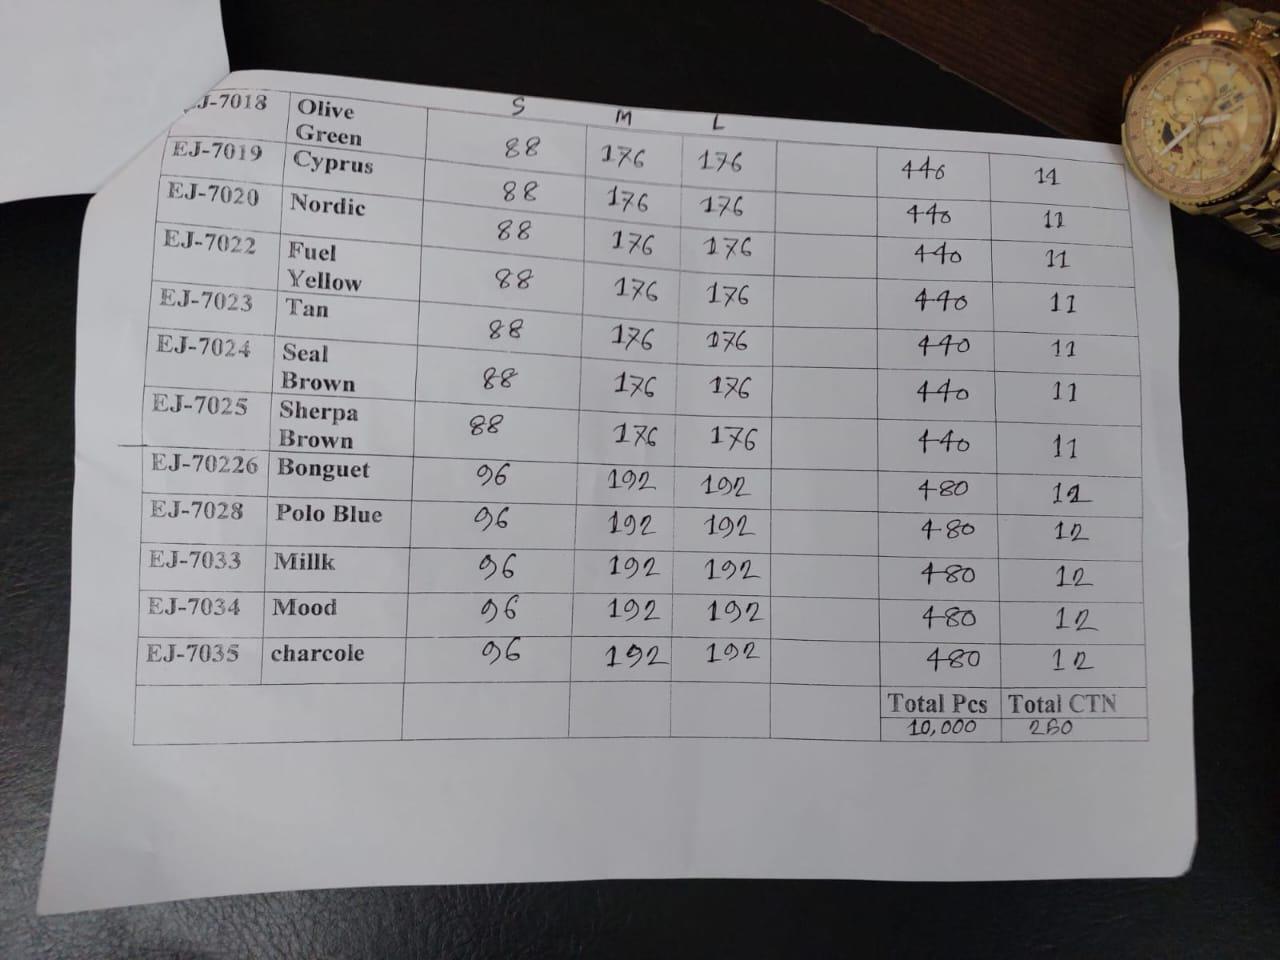 S M L
EJ-7018 Olive Green 88 176 176 440 11
EJ-7019 Cyprus 88 176 176 440 11
EJ-7020 Nordic 88 176 176 440 11
EJ-7022 Fuel Yellow 88 176 176 440 11
EJ-7023 Tan 88 176 176 440 11
EJ-7024 Seal Brown 88 176 176 440 11
EJ-7025 Sherpa Brown 88 176 176 440 11
EJ-70226 Bonguet 96 192 192 480 12
EJ-7028 Polo Blue 96 192 192 480 12
EJ-7033 Millk 96 192 192 480 12
EJ-7034 Mood 96 192 192 480 12
EJ-7035 charcole 96 192 192 480 12
Total Pcs Total CTN
10,000